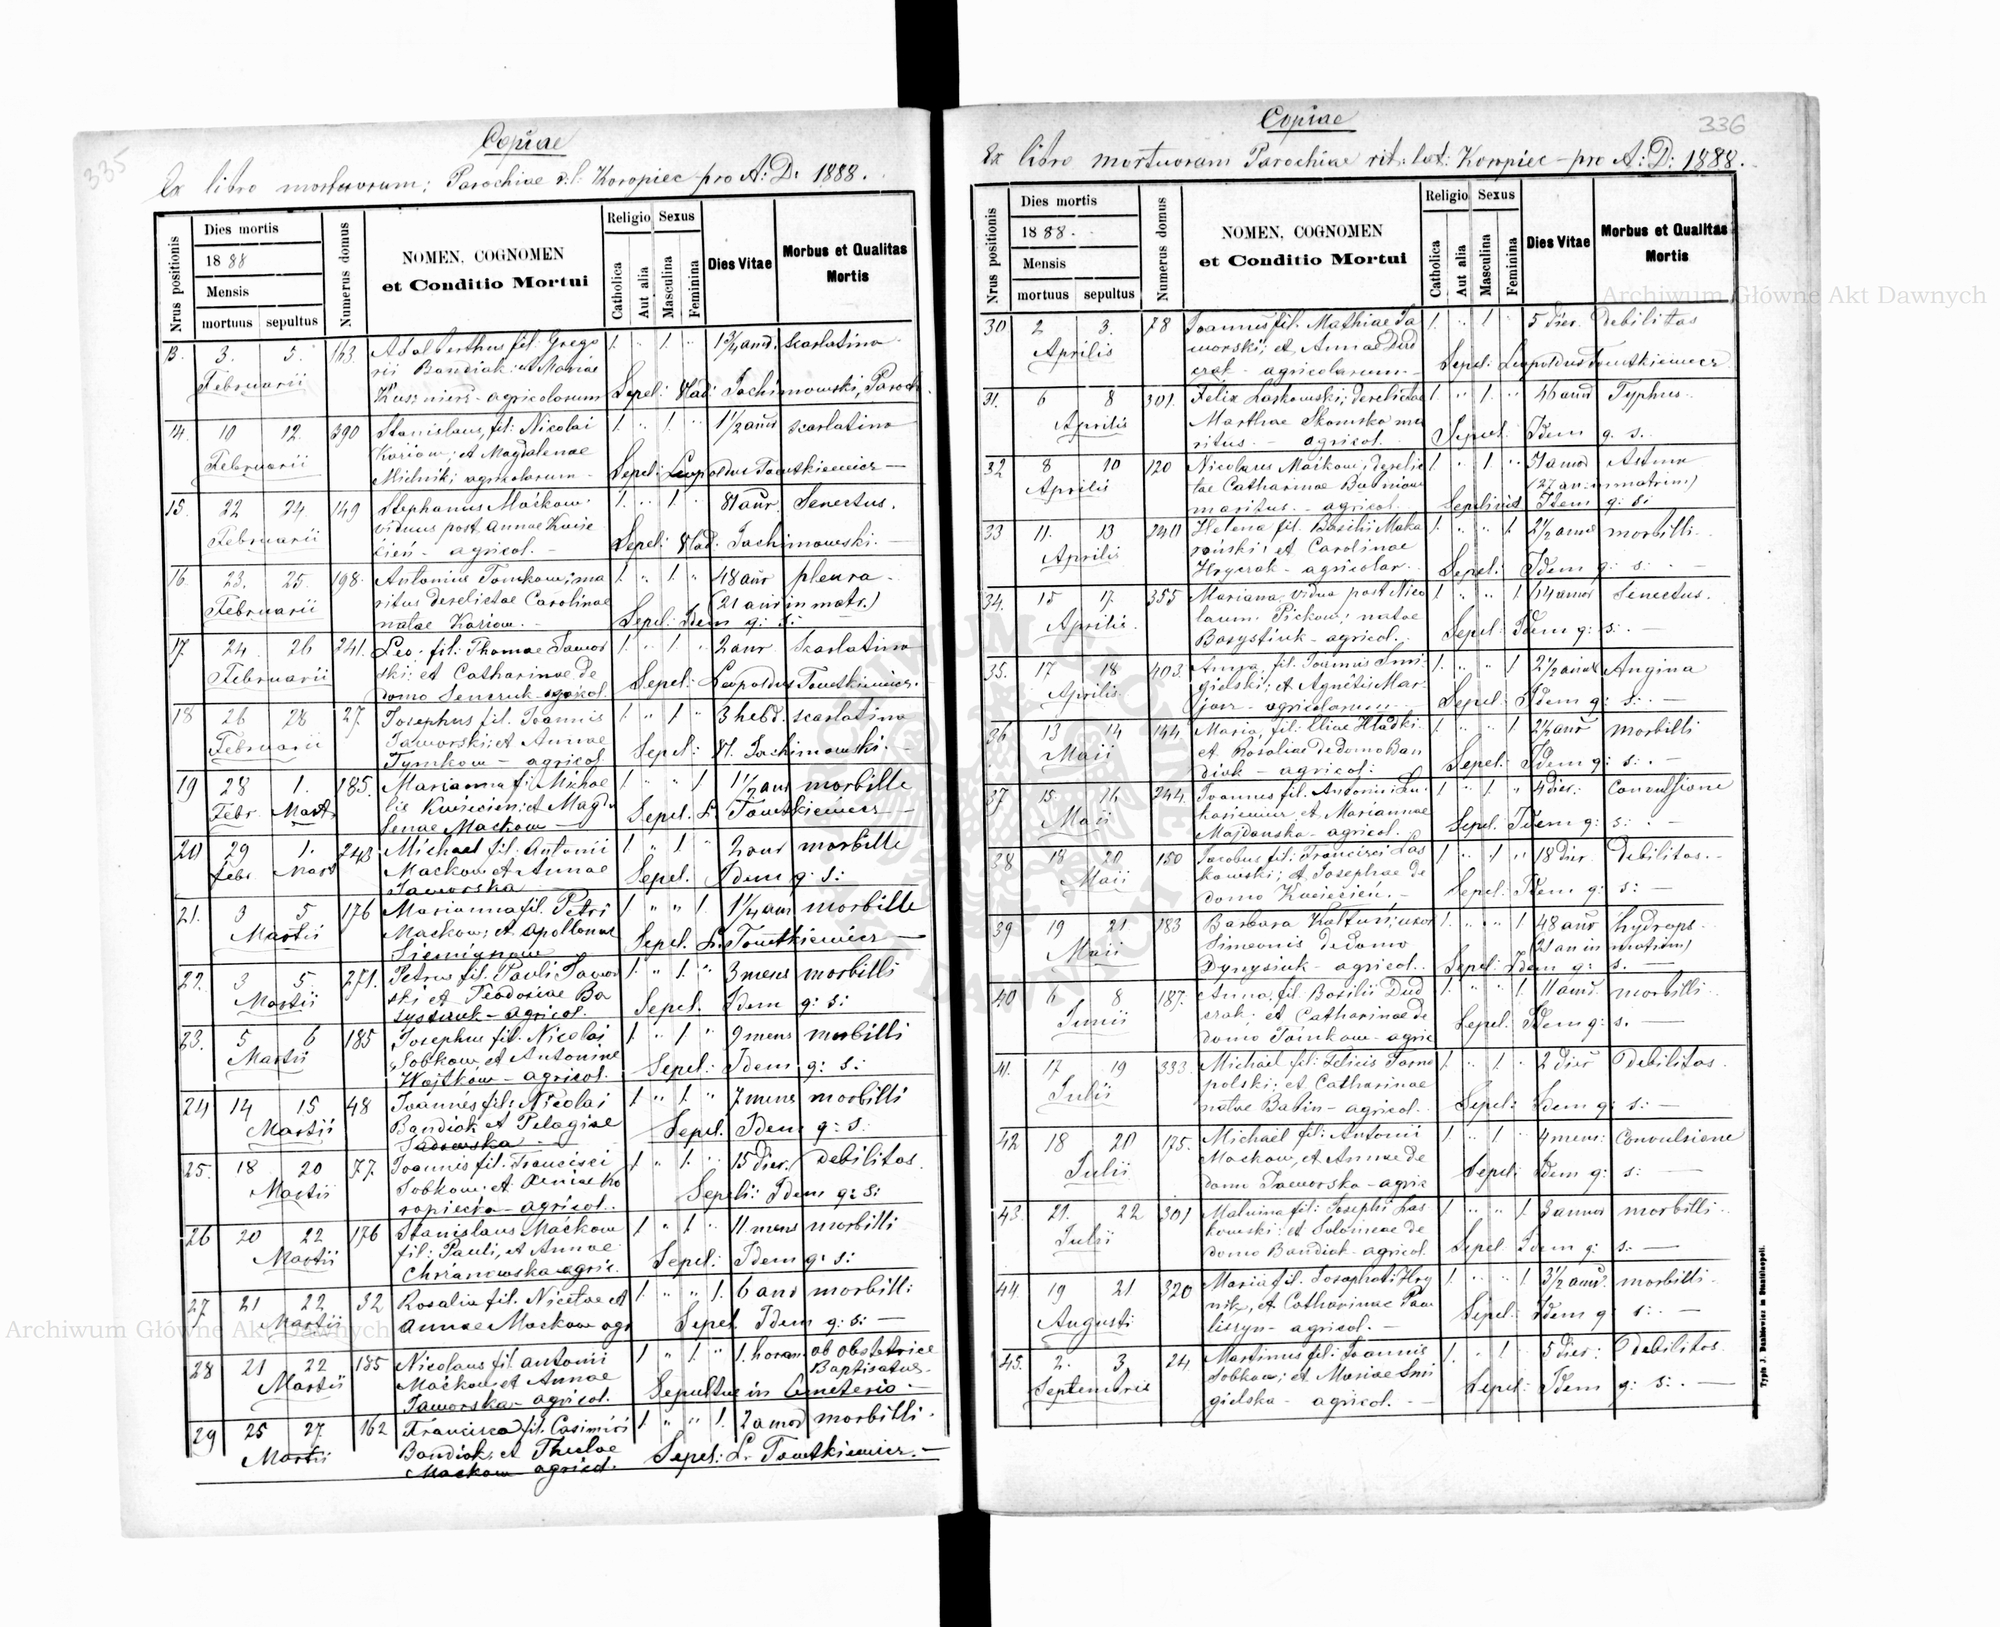 335
Copiae
Ex libro mortuorum; Parochiae r.l. Koropiec pro A: D: 1888.
Nrus positionis
Dies mortis
1888
Mensis
mortuus sepultus
Numerus domus
NOMEN, COGNOMEN
et Conditio Mortui
Religio Sexus
Catholica
Aut alia
Masculina
Feminina
Dies Vitae
Morbus et Qualitas
Mortis
13. 3. 5. 163. Adalberthus fil. Grego 1 " 1 " 1¾ annd. scarlatina
Februarii rii Bandiak: et Mariae
Kusznierz - agricolarum Sepel: Vlad: Jachimowski, Paroch.
14. 10 12. 390 Stanislaus, fil: Nicolai 1 " 1 " 1½ annr scarlatina
Februarii Kariow; et Magdalenae
Mielnik; agricolarum - Sepel: Leopoldus Toustkiewicz -
15. 22 24. 149 Stephanus Maćkow 1. " 1 " 81 anr. Senectus.
Februarii viduus post Annae
agricol. - Sepel: Vlad: Jachimowski. -
16. 23. 25. 198. Antonius Tomkow; ma 1 " 1. " 48 anr pleura.
Februarii ritus derelictae Carolinae (21 anr in matr.)
natae Kariow. - Sepel: Idem q: s:
17 24. 26 241. Leo. fil: Thomae Jawor 1 " 1 " 2 anr scarlatina
Februarii ski: et Catharinae de
domo Senczuk - agricol. Sepel: Leopoldus Toustkiewicz.
18 26 28 27. Josephus fil. Joannis 1 " 1 " 3 hebd. scarlatina
Februarii Jaworski; et Annae
Tymkow - agricol. Sepel: Vl. Jachimowski. -
19 28 1. 185. Marianna fil. Michae 1 " " 1 1½ ans morbille
Febr. Mart. lis et Magda
lenae Mackow - Sepel. L. Toustkiewicz -
20 29 1. 243 Michael fil. Antonii 1 " 1 " 2 ans morbille
Febr. Mart Mackow et Annae
Jaworska Sepel. Idem q: s:
21. 3 5 176 Marianna fil. Petri 1 " " 1. 1¼ ans morbille
Martii Mackow; et Apollonae
Sepel. L. Toustkiewicz -
22. 3 5. 271. Petrus fil. Pauli Jawor 1 " 1. " 3 mens morbilli
Martii ski et Teodoziae Ba
systiuk - agricol. Sepel. Idem q: s:
23. 5 6 185 Josephus fil. Nicolai 1. " 1 " 9 mens morbilli
Martii Sobkow et Antoninae
Wojtków - agricol. Sepel: Idem q: s:
24 14 15 48 Joannes fil: Nicolai 1. " 1. " 7 mens morbilli
Martii Bandiak et Pelagiae
Sadowska Sepel. Idem q: s:
25. 18 20 77. Joannes fil. Francisci 1 " 1. " 15 dier. Debilitas.
Martii Sobkow: et Annae Ko
ropiecka - agricol.. Sepeli: Idem q: s:
26 20 22 176 Stanislaus Maćkow 1 " 1 " 11 mens morbilli
Martii fil: Pauli, et Annae
Chrzanowska agric. Sepel: Idem q: s:
27 21 22 32 Rosalia fil. Nicetae et 1. " " 1. 6 ans morbilli
Martii Annae Mackow agr Sepel Idem q: s: -
28 21 22 185 Nicolaus fil. Antonii 1 " 1. " 1. horam ob obstetrice
Martii Maćkow et Annae Baptisatus.
Jaworska - agricol. Sepultus in Cemeterio. -
29 25 27 162 Francisca fil. Casimiri 1. " " 1. 2 annor morbilli.
Martii Bandiak, et Theclae
Mackow agricol. Sepel: L. Toustkiewicz. -
336
Copiae
Ex libro mortuorum Parochiae rit: lat: Koropiec - pro A: D: 1888.
Nrus positionis
Dies mortis
1888.
Mensis
mortuus sepultus
Numerus domus
NOMEN, COGNOMEN
et Conditio Mortui
Religio Sexus
Catholica
Aut alia
Masculina
Feminina
Dies Vitae
Morbus et Qualitas
Mortis
30 2 3. 78 Joannes fil. Mathiae Ja 1. " 1 " 5 dier. Debilitas
Aprilis worski; et Annae Dud
czak - agricolarum - Sepel: Leopoldus Toustkiewicz
31. 6 8 301. Felix Laskowski; derelictae 1 " 1. " 46 annd Typhus.
Aprilis Marthae Skomska ma
ritus. - agricol. Sepel. Idem q. s.
32 8 10 120 Nicolaus Maćkow; derelic 1 " 1. " 51 annd Astma
Aprilis tae Catharinae (27 an. in matrim)
maritus. - agricol. Idem q: s:
33 11. 13 240 Helena fil. Basilii Maka 1. " " 1. 2½ annd morbilli.
Aprilis et Carolinae
Hryczak - agricolar. Sepel: Idem q: s: -
34. 15 17. 355 Mariana, vidua post Nico 1 " " 1 64 annor Senectus.
Aprilis laum Pickow, natae
Basystiuk - agricol. Sepel: Idem q: s: -
35. 17 18 403. Anna, fil. Joannis Smi 1. " " 1 2½ annd Angina
Aprilis gielski; et Agnetis Mar
- agricolarum - Sepel: Idem q: s: -
36 13 14 144 Maria, fil: Eliae Hladki 1. " " 1. 2½ anr morbilli
Maii et Rosaliae de domo Ban
diak - agricol: Sepel: Idem q: s: -
37 15 16 244. Joannes fil. Antonii Lu 1 " 1 " 4 dier: Convulsione
Maii et Mariannae
Majdanska - agricol. Sepel: Idem q: s: -
38 18 20 150 Jacobus fil: Francisci Las 1 " 1 " 18 dier. Debilitas. -
Maii kowski; et Josephae de
domo Sepel: Idem q: s: -
39 19 21 183 Barbara Kaltun; uxor 1. " " 1 48 anr hydrops.
Maii Simeonis de domo (21 an in matrim)
Dyrysiuk - agricol.. Sepel: Idem q: s. -
40 6 8 187. Anna, fil. Basilii Dud 1. " " 1 11 ans. morbilli.
Junii czak; et Catharinae de
domo Tomkow - agric Sepel: Idem q: s. -
41. 17 19 333. Michael fil: Felicis Tarno 1 " 1 " 2 dier Debilitas.
Julii polski; et Catharinae
natae Babin - agricol.. Sepel: Idem q: s: -
42. 18 20 175. Michael fil: Antonii 1 " 1 " 4 mens: Convulsione
Julii Mackow, et Annae de
domo Jaworska - agric Sepel: Idem q: s: -
43. 21. 22 301 Malvina fil: Josephi Las 1. " " 1. 3 annor morbilli.
Julii kowski: et Salomeae de
domo Bandiak - agricol. Sepel: Idem q: s: -
44. 19 21 320 Maria fil. Josaphati Hry 1. " " 1 3½ annr. morbilli.
Augusti et Catharinae Paw
liszyn - agricol. - Sepel: Idem q: s: -
45. 2. 3 24 Martinus fil: Joannis 1. " 1 " 5 dier: Debilitas.
Septembris Sobkow; et Mariae Smi
gielska - agricol. - Sepel: Idem q: s: -
Typis J. Dankiewicz in Stanislaopoli.
Archiwum Główne Akt Dawnych
Archiwum Główne Akt Dawnych
ARCHIWUM GŁÓWNE
AKT DAWNYCH